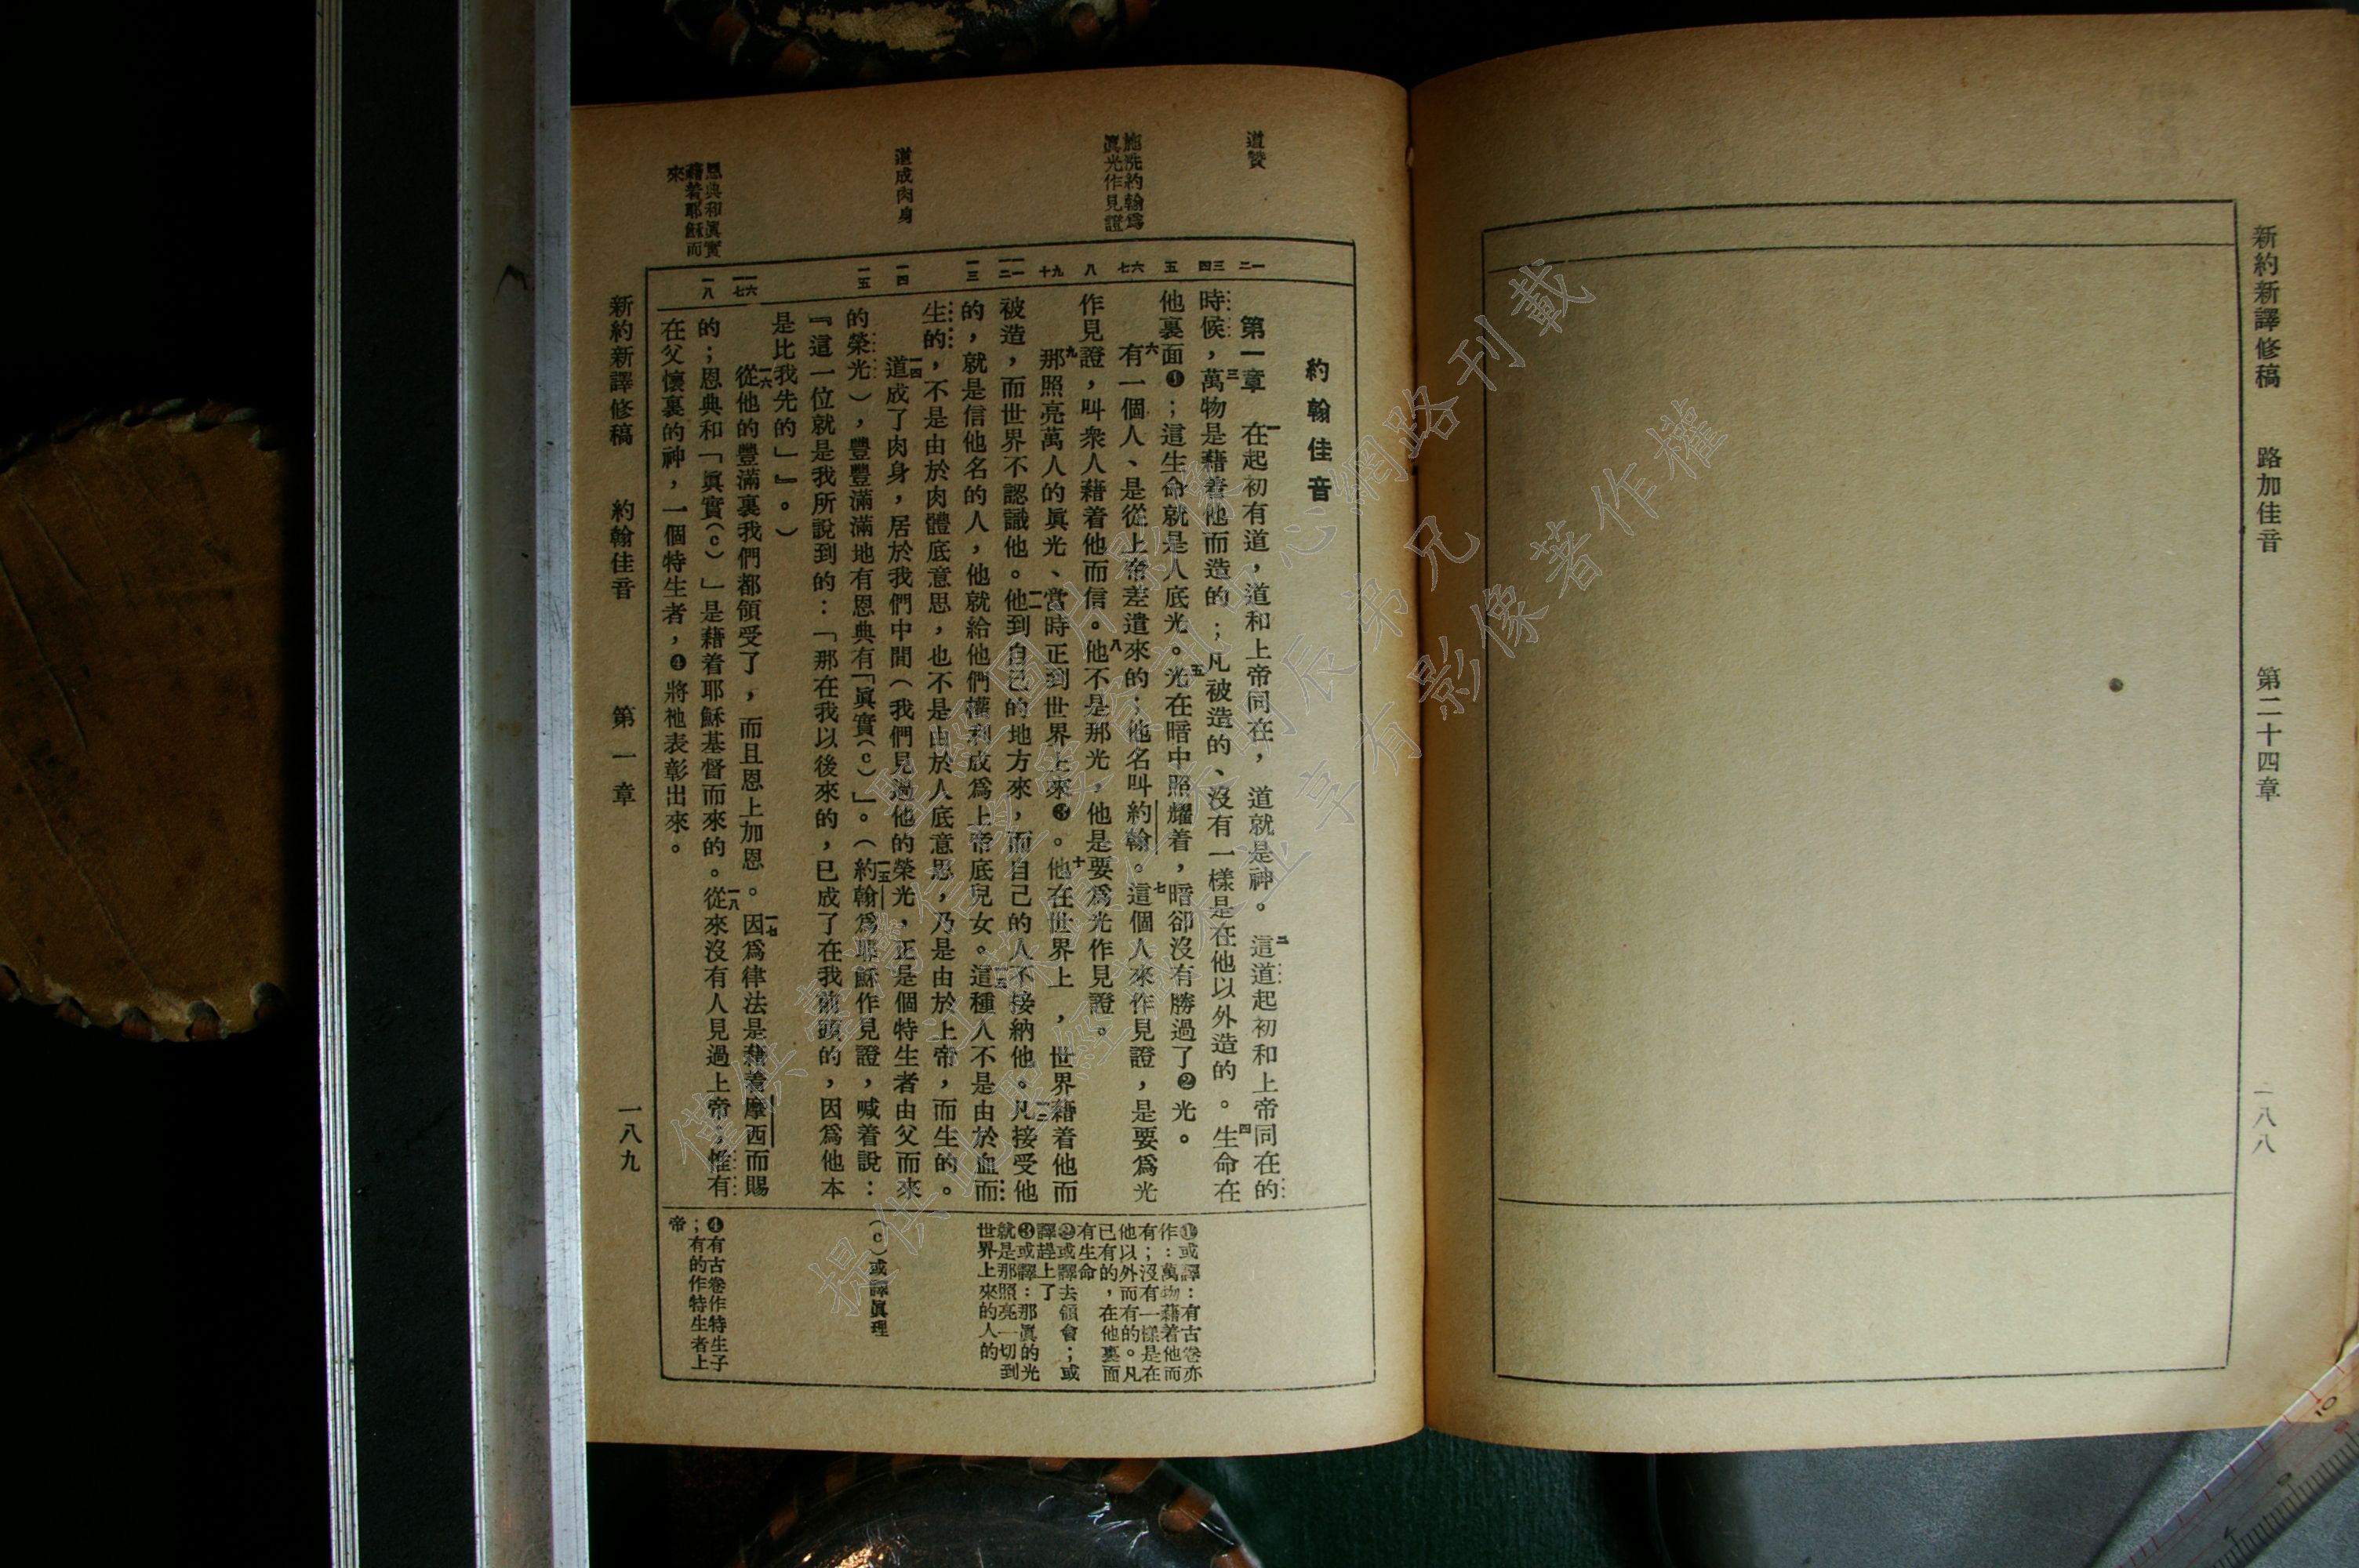 新約新譯修稿 路加佳音 第二十四章 一八八
道贊
施洗約翰為
真光作見證
道成肉身
恩典和眞實
藉着耶穌而
來
約翰佳音
第一章 一在起初有道，道和上帝同在，道就是神。二這道起初和上帝同在的
時候，三萬物是藉着他而造的；凡被造的、沒有一樣是在他以外造的。四生命在
他裏面❶；這生命就是人底光。五光在暗中照耀着，暗卻沒有勝過了❷光。
六有一個人、是從上帝差遣來的；他名叫約翰。七這個人來作見證，是要爲光
作見證，叫衆人藉着他而信。八他不是那光，他是要爲光作見證。
九那照亮萬人的眞光、當時正到世界上來❸。十他在世界上，世界藉着他而
被造，而世界不認識他。一一他到自己的地方來，而自己的人不接納他。一二凡接受他
的，就是信他名的人，他就給他們權利成爲上帝底兒女。一三這種人不是由於血而
生的，不是由於肉體底意思，也不是由於人底意思，乃是由於上帝，而生的。
一四道成了肉身，居於我們中間（我們見過他的榮光，正是個特生者由父而來
的榮光），豐豐滿滿地有恩典有「眞實(c)」。（一五約翰爲耶穌作見證，喊着說：
『這一位就是我所說到的：「那在我以後來的，已成了在我前頭的，因爲他本
是比我先的」』。）
一六從他的豐滿裏我們都領受了，而且恩上加恩。一七因爲律法是藉着摩西而賜
的；恩典和「眞實(c)」是藉着耶穌基督而來的。一八從來沒有人見過上帝；惟有
在父懷裏的神，一個特生者，❹將祂表彰出來。
❶或譯：有古卷亦
作：萬物藉着他而
有；沒有一樣是在
他以外而有的。凡
已有的，在他裏面
有生命
❷或譯去領會；或
譯趕上了
❸或譯：那眞的光
就是那照亮一切到
世界上來的人的
(c)或譯眞理
❹有古卷作特生子
；有的作特生者上
帝
新約新譯修稿 約翰佳音 第一章 一八九